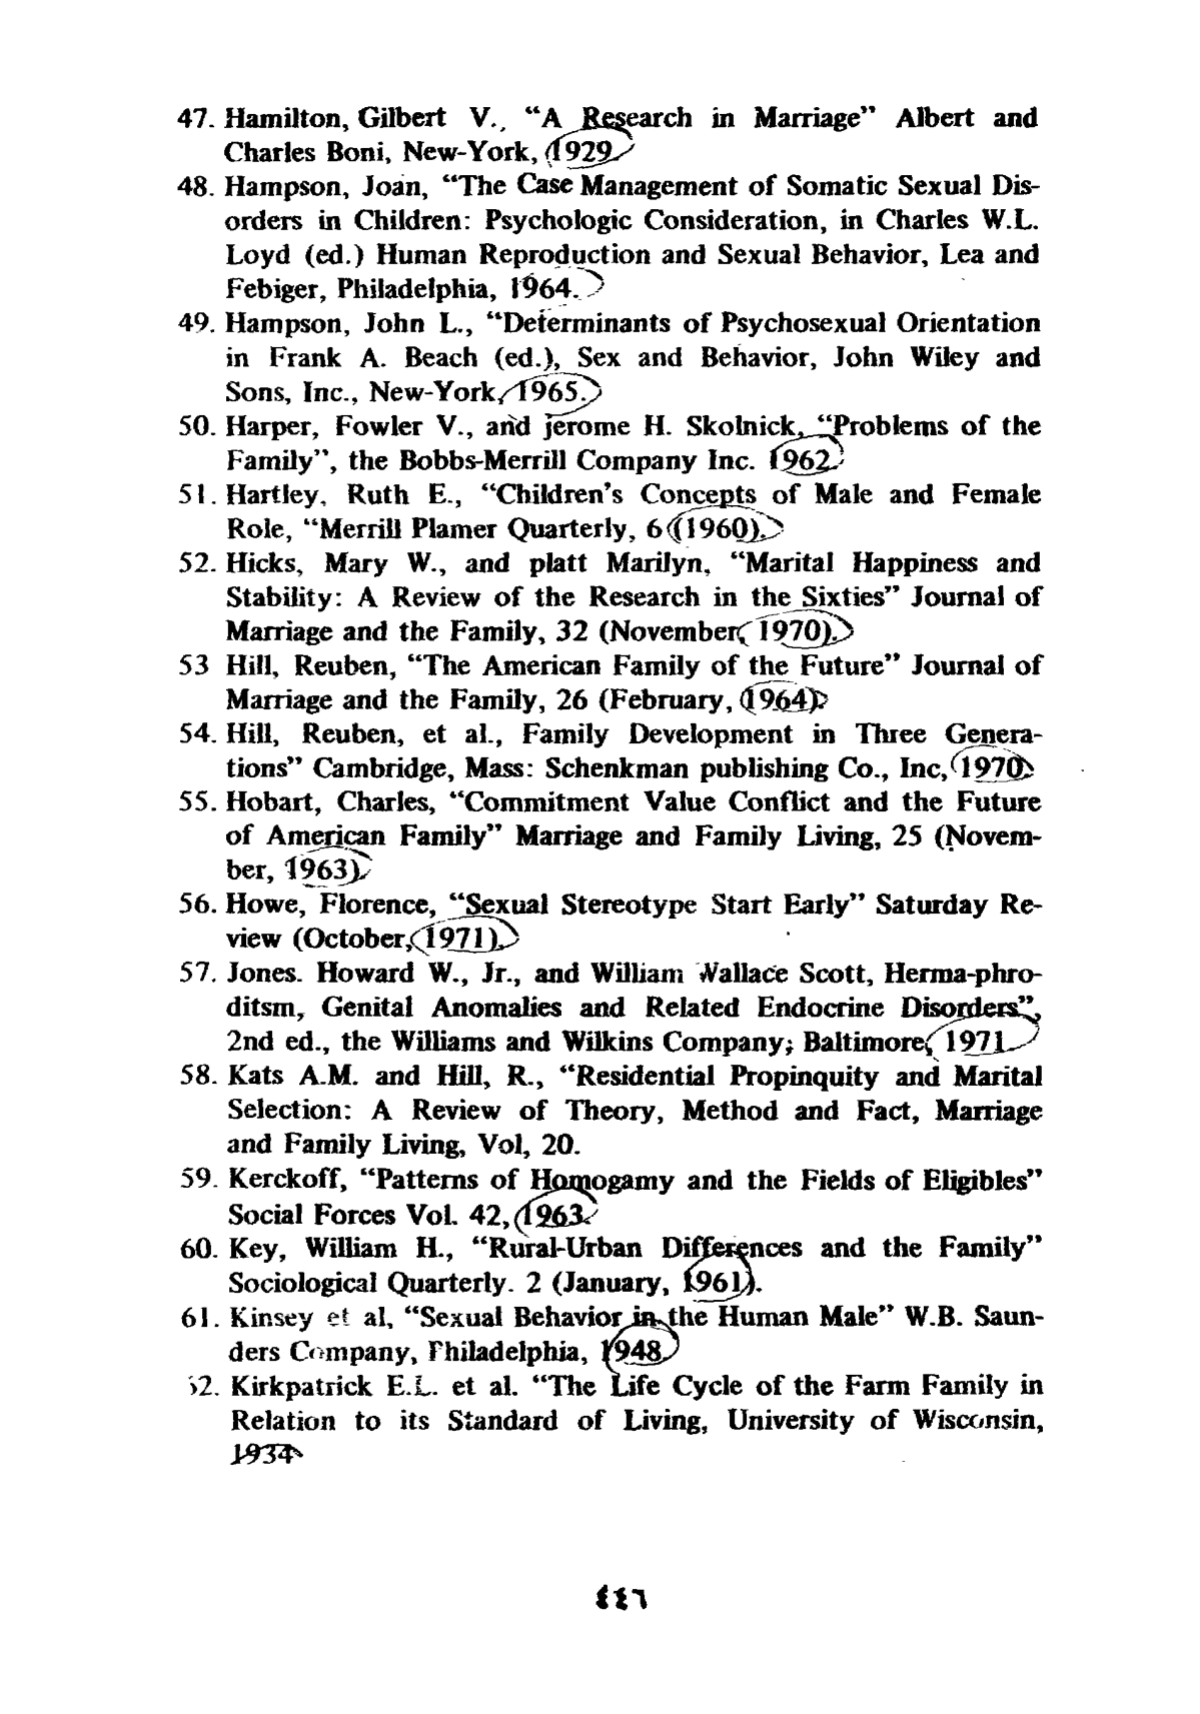 47. Hamilton, Gilbert V., “A Research in Marriage” Albert and
Charles Boni, New-York, 1929.
48. Hampson, Joan, “The Case Management of Somatic Sexual Dis-
orders in Children: Psychologic Consideration, in Charles W.L.
Loyd (ed.) Human Reproduction and Sexual Behavior, Lea and
Febiger, Philadelphia, 1964.
49. Hampson, John L., “Determinants of Psychosexual Orientation
in Frank A. Beach (ed.), Sex and Behavior, John Wiley and
Sons, Inc., New-York, 1965.
50. Harper, Fowler V., and jerome H. Skolnick, “Problems of the
Family”, the Bobbs-Merrill Company Inc. 1962.
51. Hartley, Ruth E., “Children’s Concepts of Male and Female
Role, “Merrill Plamer Quarterly, 6 (1960).
52. Hicks, Mary W., and platt Marilyn, “Marital Happiness and
Stability: A Review of the Research in the Sixties” Journal of
Marriage and the Family, 32 (November, 1970).
53 Hill, Reuben, “The American Family of the Future” Journal of
Marriage and the Family, 26 (February, 1964).
54. Hill, Reuben, et al., Family Development in Three Genera-
tions” Cambridge, Mass: Schenkman publishing Co., Inc, 1970.
55. Hobart, Charles, “Commitment Value Conflict and the Future
of American Family” Marriage and Family Living, 25 (Novem-
ber, 1963).
56. Howe, Florence, “Sexual Stereotype Start Early” Saturday Re-
view (October, 1971).
57. Jones. Howard W., Jr., and William Wallace Scott, Herma-phro-
ditsm, Genital Anomalies and Related Endocrine Disorders”,
2nd ed., the Williams and Wilkins Company; Baltimore, 1971.
58. Kats A.M. and Hill, R., “Residential Propinquity and Marital
Selection: A Review of Theory, Method and Fact, Marriage
and Family Living, Vol, 20.
59. Kerckoff, “Patterns of Homogamy and the Fields of Eligibles”
Social Forces Vol. 42, 1963.
60. Key, William H., “Rural-Urban Differences and the Family”
Sociological Quarterly. 2 (January, 1961).
61. Kinsey et al, “Sexual Behavior in the Human Male” W.B. Saun-
ders Company, Philadelphia, 1948.
62. Kirkpatrick E.L. et al. “The Life Cycle of the Farm Family in
Relation to its Standard of Living, University of Wisconsin,
1934.
٤٤٦